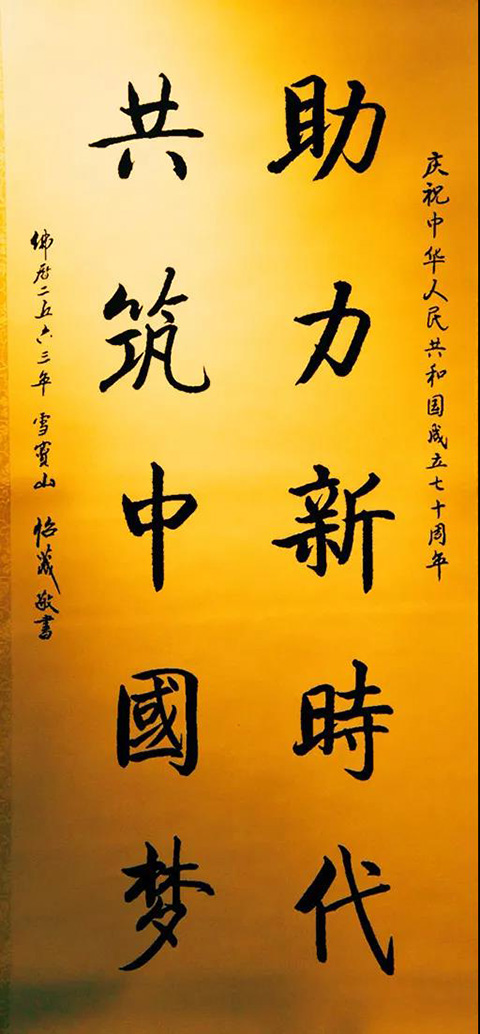 庆祝中华人民共和国成立七十周年
助力新時代
共筑中國梦
佛历二五六三年 雪窦山 怡藏敬書